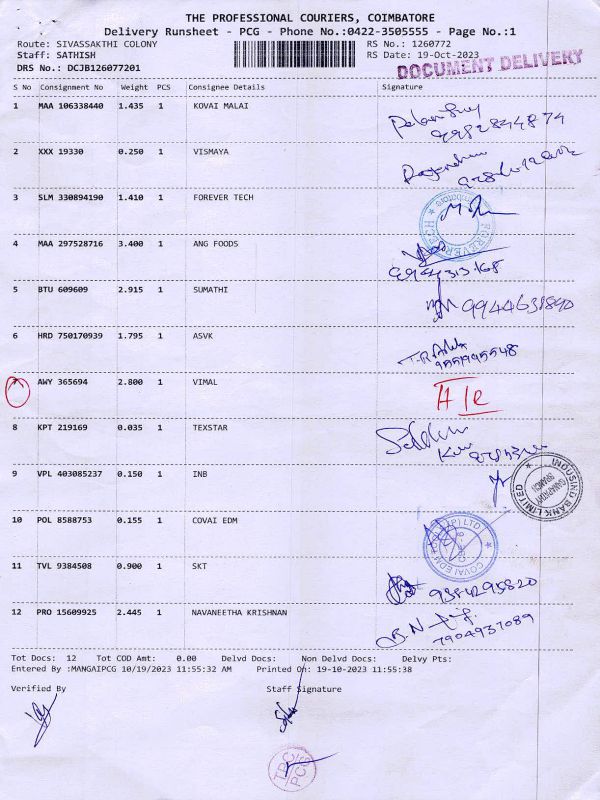 THE PROFESSIONAL COURIERS, COIMBATORE
Delivery Runsheet - PCG - Phone No.:0422-3505555 - Page No.:1
Route: SIVASSAKTHI COLONY RS No.: 1260772
Staff: SATHISH RS Date: 19-Oct-2023
DRS No.: DCJB126077201 DOCUMENT DELIVERY
S No Consignment No Weight PCS Consignee Details Signature
1 MAA 106338440 1.435 1 KOVAI MALAI
2 XXX 19330 0.250 1 VISMAYA
3 SLM 330894190 1.410 1 FOREVER TECH
4 MAA 297528716 3.400 1 ANG FOODS
5 BTU 609609 2.915 1 SUMATHI
9944631890
6 HRD 750170939 1.795 1 ASVK
7 AWY 365694 2.800 1 VIMAL
8 KPT 219169 0.035 1 TEXSTAR
9 VPL 403085237 0.150 1 INB
INDUSIND BANK LIMITED
GANAPATHY
BRANCH
10 POL 8588753 0.155 1 COVAI EDM
COVAI EDM (P) LTD
11 TVL 9384508 0.900 1 SKT
12 PRO 15609925 2.445 1 NAVANEETHA KRISHNAN
7904937089
Tot Docs: 12 Tot COD Amt: 0.00 Delvd Docs: Non Delvd Docs: Delvy Pts:
Entered By :MANGAIPCG 10/19/2023 11:55:32 AM Printed On: 19-10-2023 11:55:38
Verified By Staff Signature
TPC
PCS